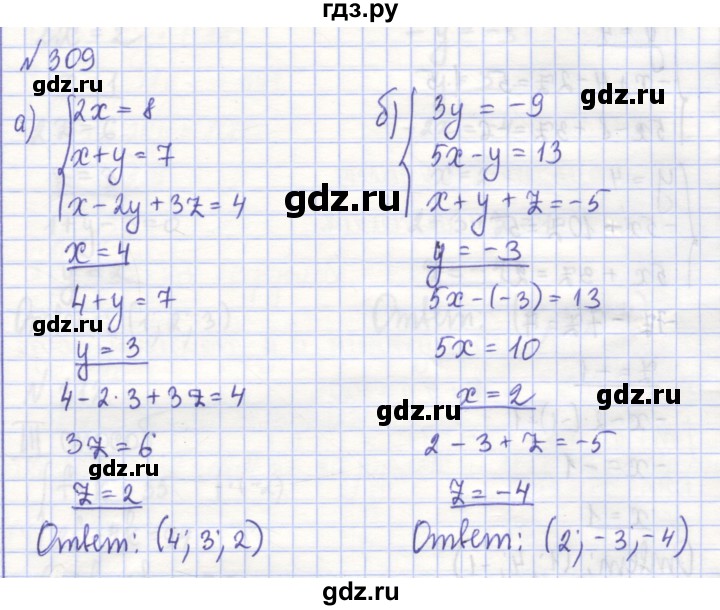 гдз.ру
№ 309
а) 2x = 8
x + y = 7
x - 2y + 3z = 4
x = 4
4 + y = 7
y = 3
4 - 2 · 3 + 3z = 4
3z = 6
z = 2
Ответ: (4; 3; 2)
б) 3y = -9
5x - y = 13
x + y + z = -5
y = -3
5x - (-3) = 13
5x = 10
x = 2
2 - 3 + z = -5
z = -4
Ответ: (2; -3; -4)
gdz.ru
gdz.ru
gdz.ru
gdz.ru
gdz.ru
gdz.ru
gdz.ru
gdz.ru
gdz.ru